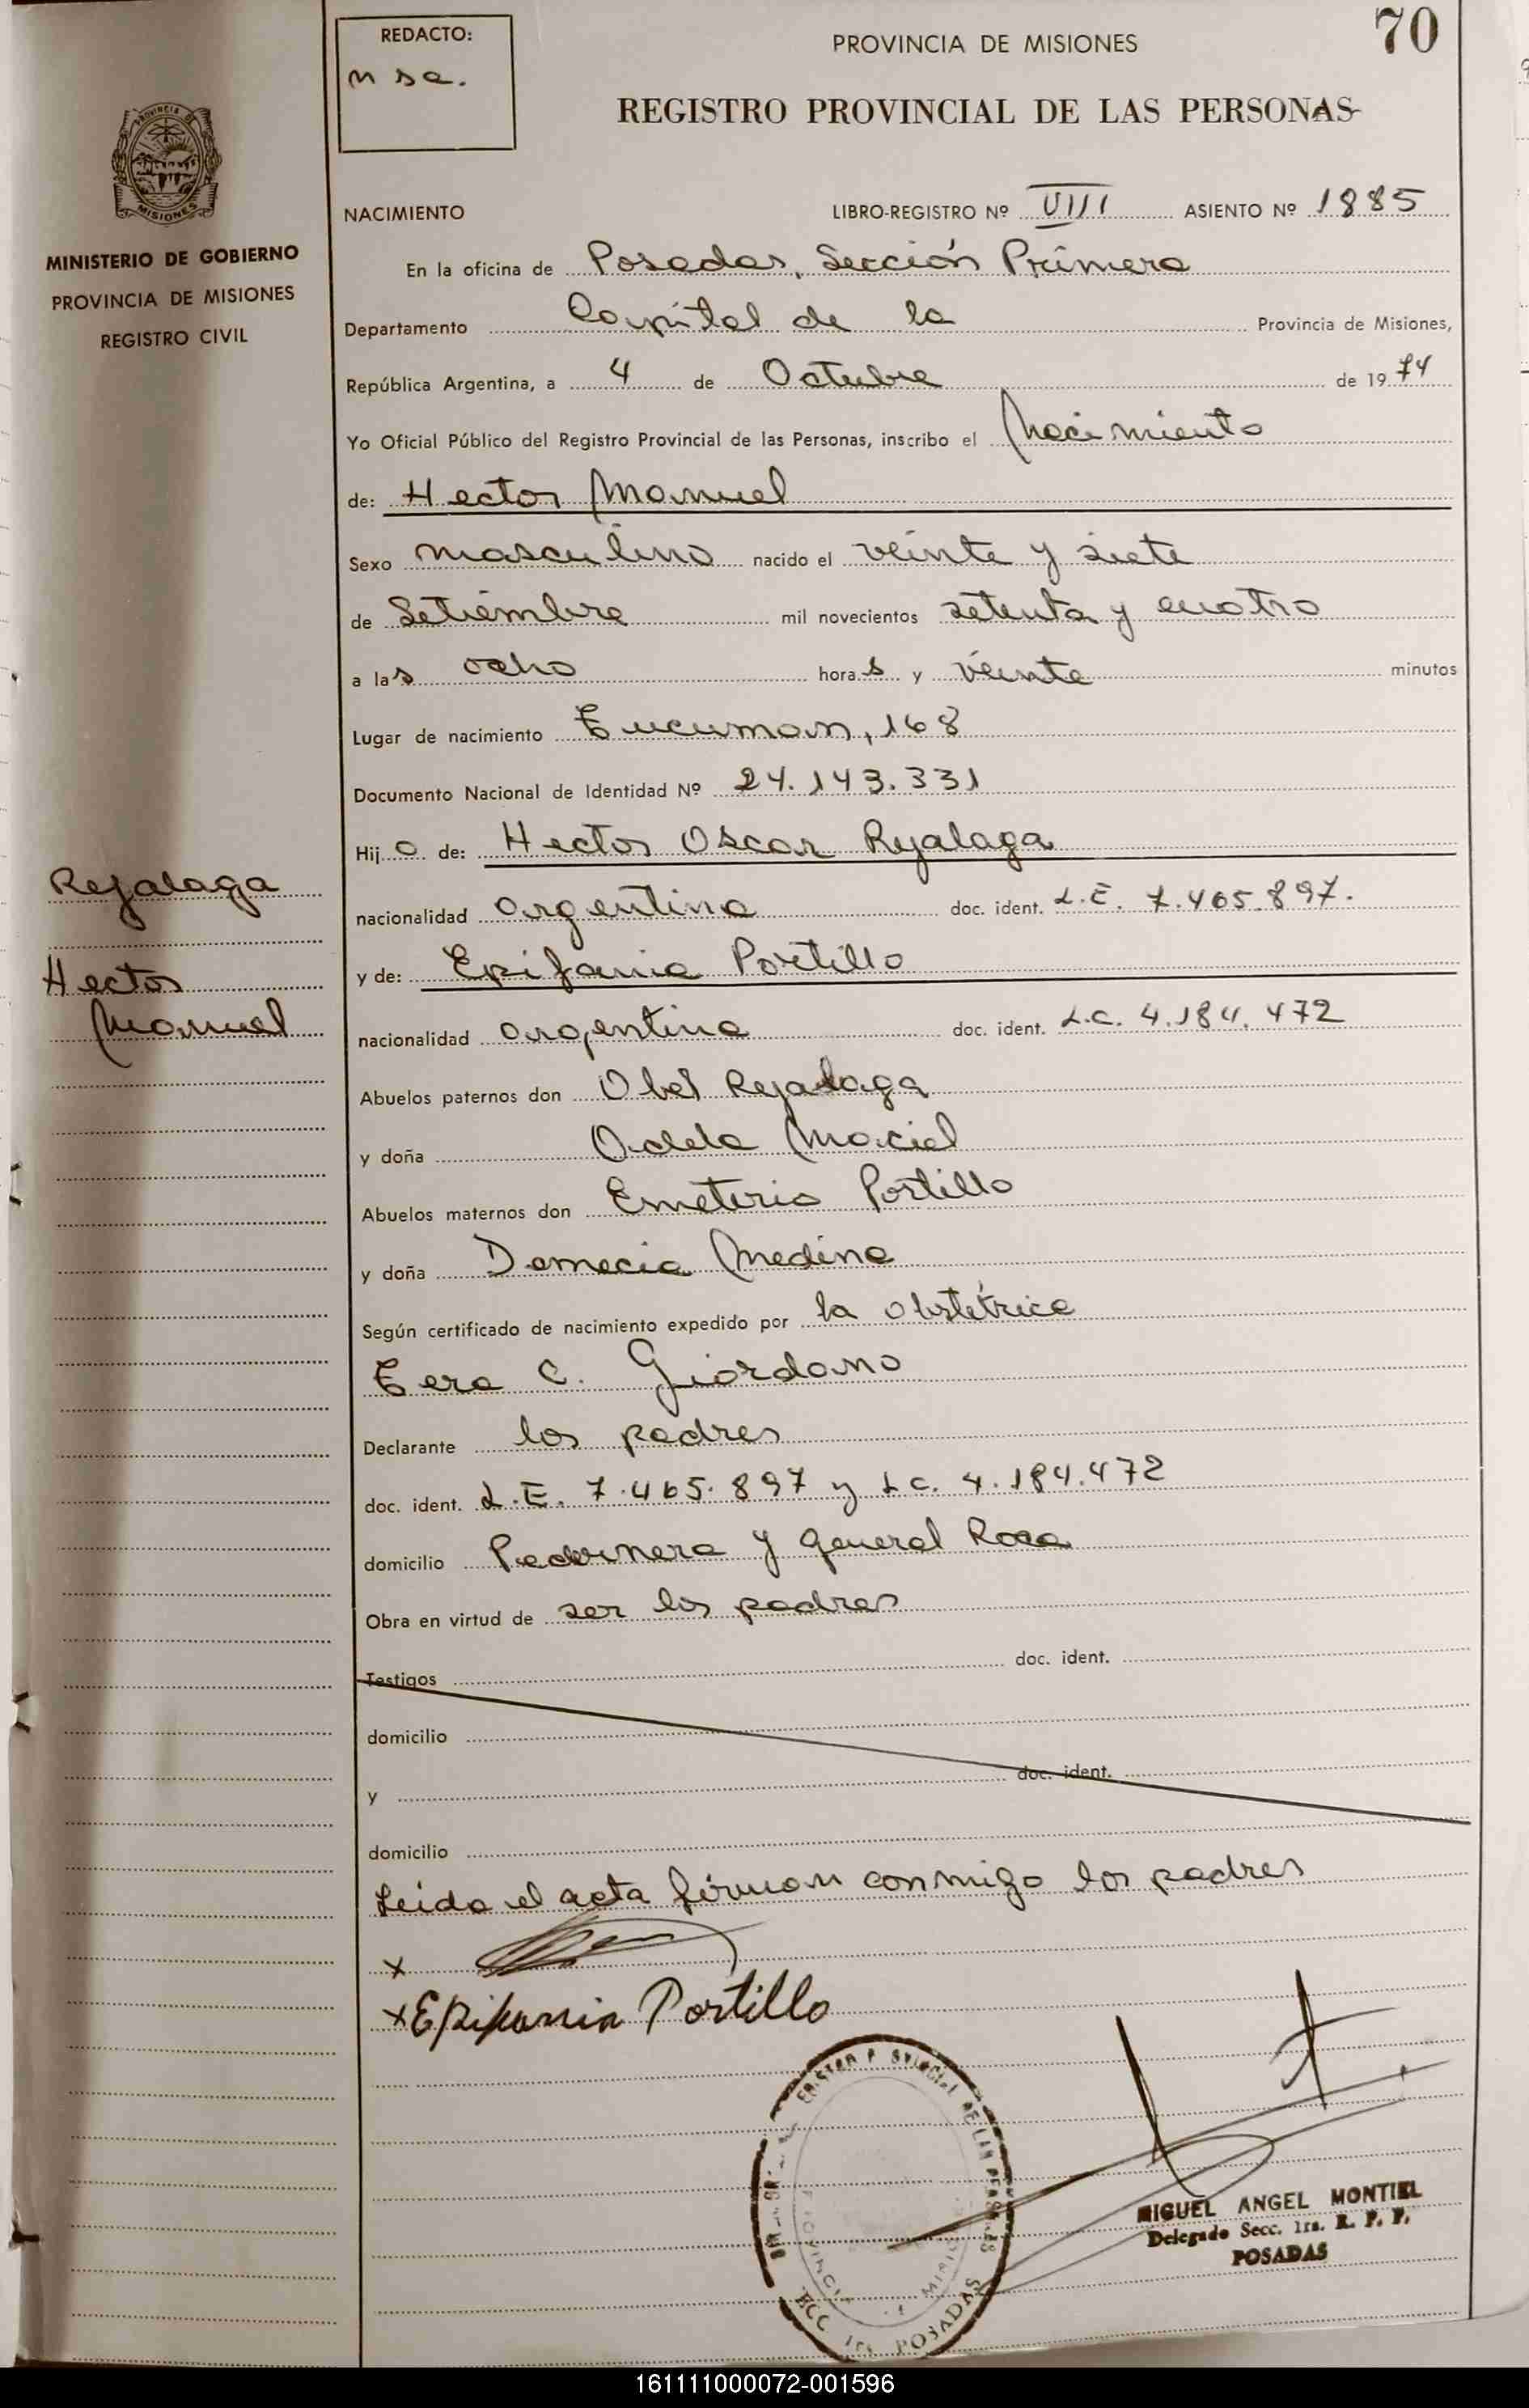 70
REDACTO:
PROVINCIA DE MISIONES
REGISTRO PROVINCIAL DE LAS PERSONAS
PROVINCIA DE
MISIONES
MINISTERIO DE GOBIERNO
PROVINCIA DE MISIONES
REGISTRO CIVIL
NACIMIENTO LIBRO-REGISTRO Nº VIII ASIENTO Nº 1885
En la oficina de Posadas, Sección Primera
Departamento Capital de la Provincia de Misiones,
República Argentina, a 4 de Octubre de 1974
Yo Oficial Público del Registro Provincial de las Personas, inscribo el Nacimiento
de: Hector Manuel
Sexo masculino nacido el veinte y siete
de Setiembre mil novecientos setenta y cuatro
a las ocho horas y veinte minutos
Lugar de nacimiento Tucuman, 168
Documento Nacional de Identidad Nº 24.143.331
Hijo de: Hector Oscar Rejalaga
Rejalaga
Hector
Manuel
nacionalidad argentina doc. ident. L.E. 7.465.897.
y de: Epifania Portillo
nacionalidad argentina doc. ident. L.C. 4.184.472
Abuelos paternos don Obel Rejalaga
y doña Odela Maciel
Abuelos maternos don Emeterio Portillo
y doña Demecia Medina
Según certificado de nacimiento expedido por la obstétrica
C. Giordano
Declarante los padres
doc. ident. L.E. 7.465.897 y L.C. 4.184.472
domicilio Pedernera y General Roca
Obra en virtud de ser los padres
Testigos doc. ident.
domicilio
y doc. ident.
domicilio
Leida el acta firman conmigo los padres
x
x Epifania Portillo
MIGUEL ANGEL MONTIEL
Delegado Secc. 1ra. R. P. P.
POSADAS
SECC 1ra. POSADAS
161111000072-001596